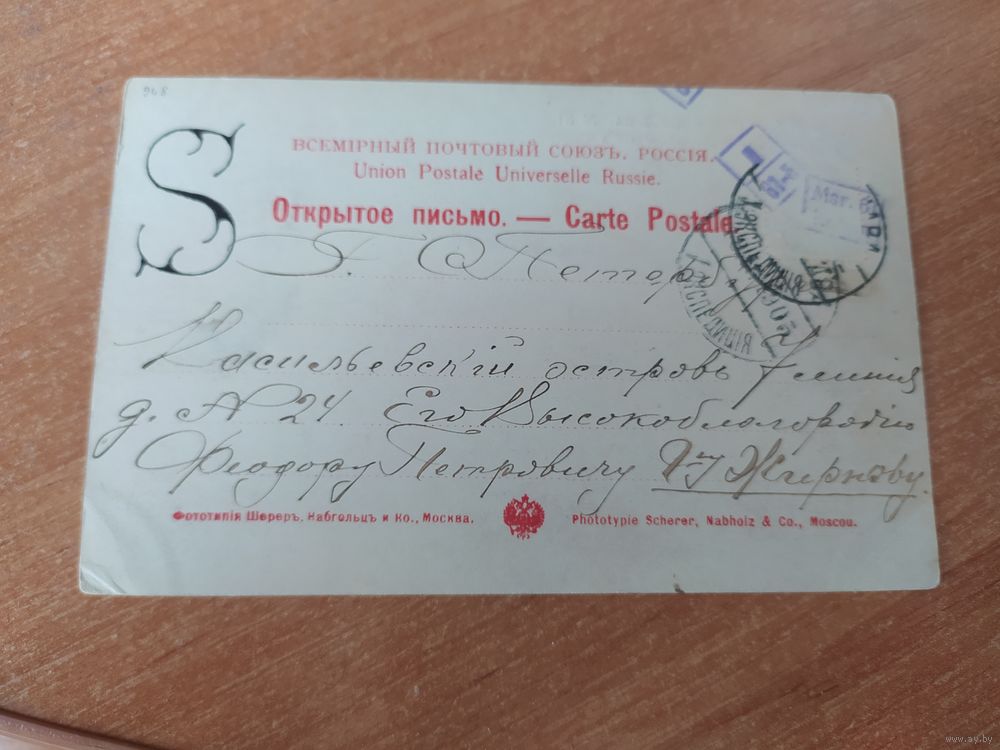 948
S
ВСЕМІРНЫЙ ПОЧТОВЫЙ СОЮЗЪ. РОССІЯ.
Union Postale Universelle Russie.
Открытое письмо. — Carte Postale.
Г. С Петерб
1
Mar. 6
ЭКСПЕДИЦІЯ
1903
Васильевскій островъ 7 линия
д. № 24. Его Высокоблагородію
Феодору Петровичу Г-ну Жирнову.
Фототипія Шереръ, Набгольцъ и Ко., Москва.
Phototypie Scherer, Nabholz & Co., Moscou.
www.ay.by